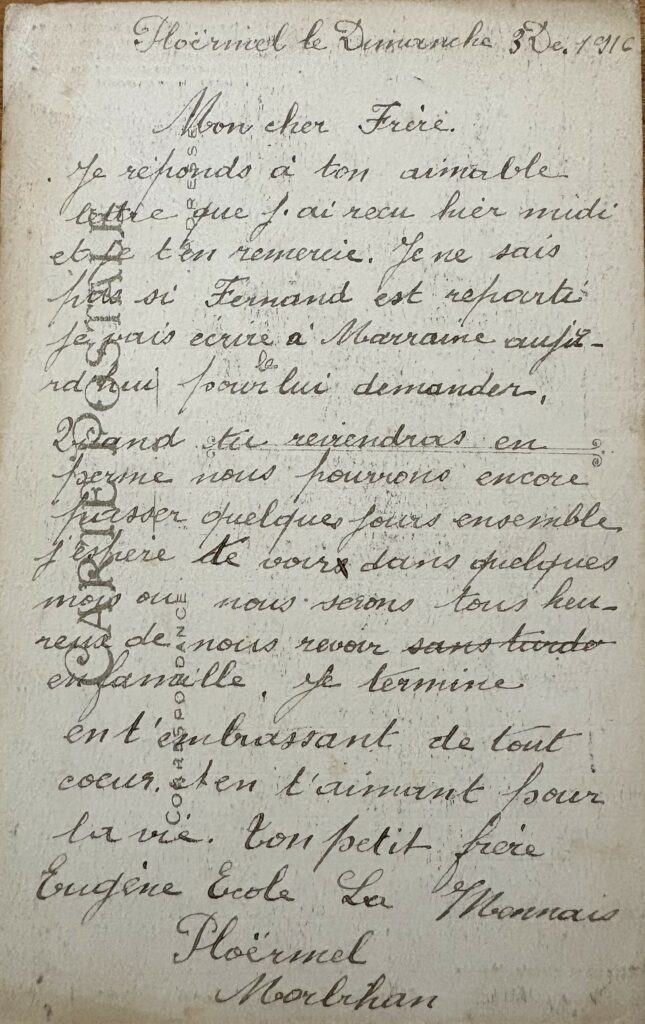 Ploërmel le Dimanche 3 De. 1916
Mon cher Frère.
Je réponds à ton aimable
lettre que j.ai reçu hier midi
et je t'en remercie. Je ne sais
pas si Fernand est reparti
je vais écrire à Marraine auju-
rd'hui pour le lui demander.
Quand tu reviendras en
perme nous pourrons encore
passer quelques jours ensemble
j'espère te voir dans quelques
mois ou nous serons tous heu-
reux de nous revoir sans tarde
en famille. Je termine
en t'embrassant de tout
coeur. t en t'aimant pour
la vie. Ton petit frère
Eugène Ecole La Mennais
Ploërmel
Morbihan
CARTE POSTALE
CORRESPONDANCE
ADRESSE